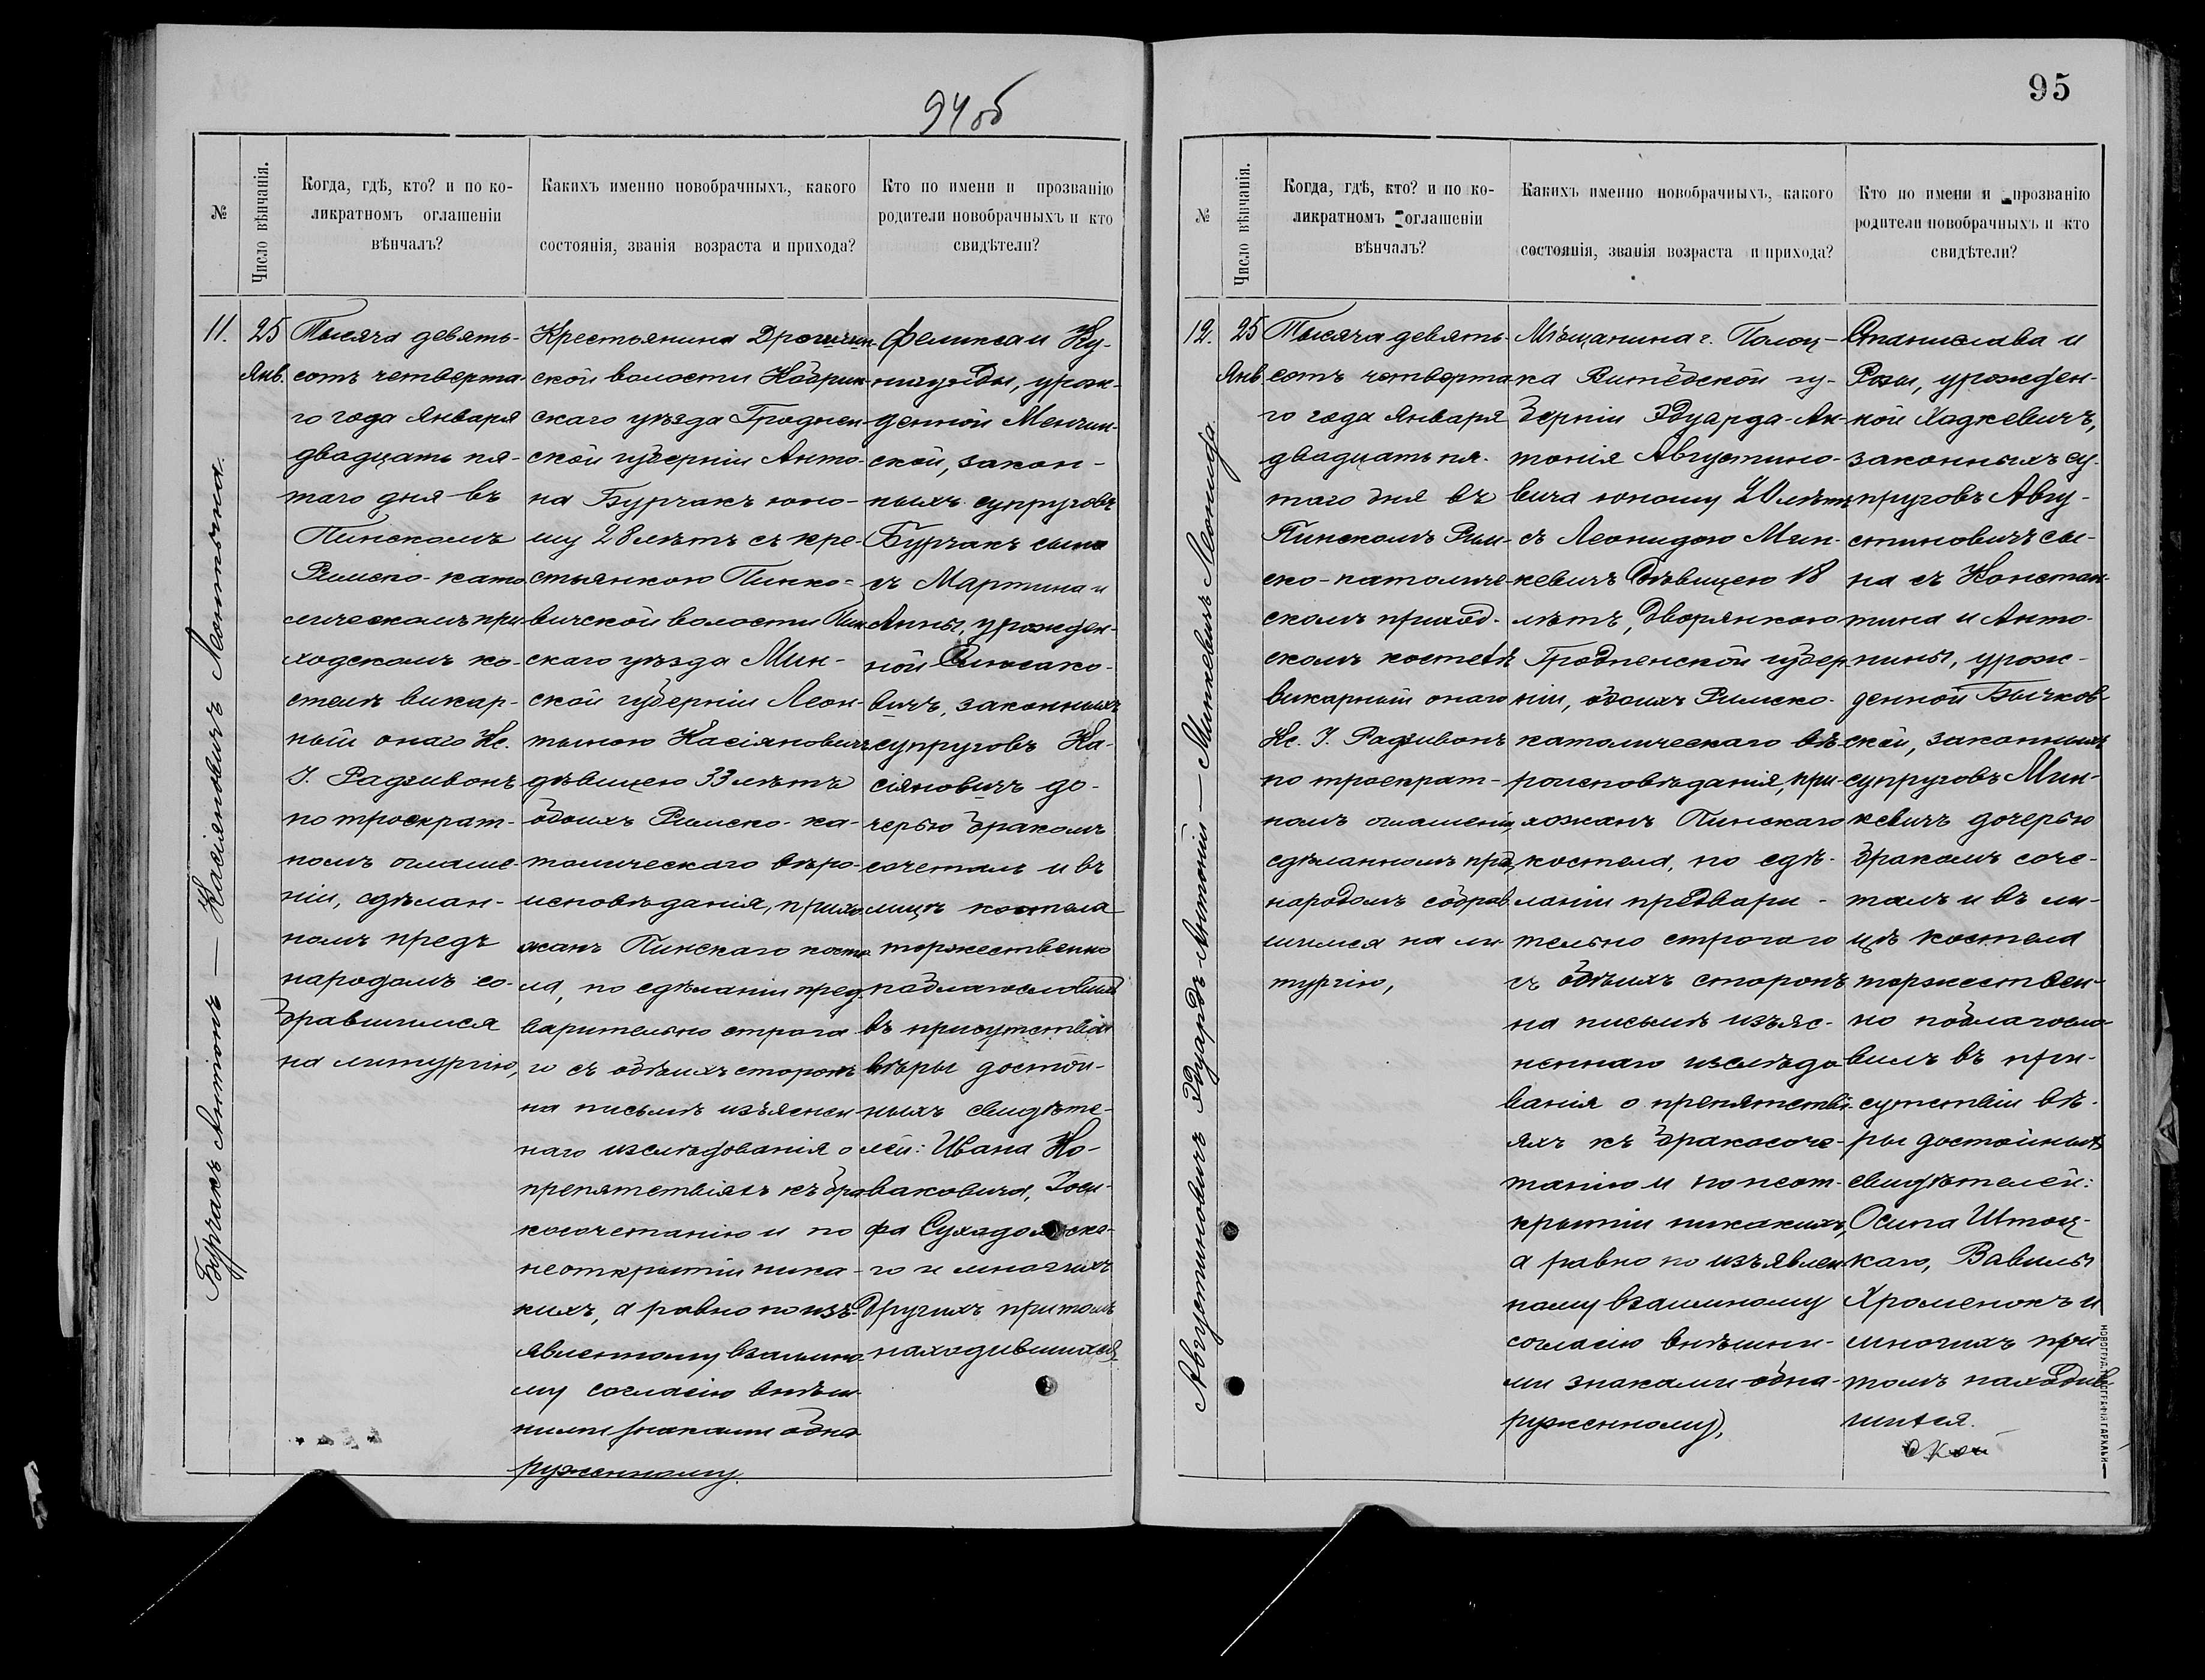 94 об
№
Число вѣнчанія.
Когда, гдѣ, кто? и по ко-
ликратномъ оглашеніи
вѣнчалъ?
Какихъ именно новобрачныхъ, какого
состоянія, званія возраста и прихода?
Кто по имени и прозванію
родители новобрачныхъ и кто
свидѣтели?
Бурчакъ Антонъ — Касіяновичъ Леонтына.
11.
25
Янв.
Тысяча девять-
сотъ четверта-
го года Января
двадцать пя-
таго дня въ
Пинскомъ
Римско-като
лическомъ при
ходскомъ ко-
стелѣ викар-
ный онаго Кс.
І. Радзивонъ
по троекрат-
номъ оглаше
ніи, сдѣлан-
номъ предъ
народомъ со-
бравшимся
на литургію,
Крестьянина Дрогичин-
ской волости Кобрин-
скаго уѣзда Гроднен-
ской губерніи Анто-
на Бурчакъ юно-
шу 28 лѣтъ съ кре-
стьянкою Пинко-
вичской волости Пин
скаго уѣзда Мин-
ской губерніи Леон-
тыною Касіяновичъ
дѣвицею 33 лѣтъ
обоихъ Римско-ка-
толическаго вѣро-
исповѣданія, прихо
жанъ Пинскаго косте
ла, по сдѣланіи пред
варительно строга
го съ обѣихъ сторонъ
на письмѣ изъяснен-
наго изслѣдованія о
препятствіяхъ къ бра
косочетанію и по
неоткрытіи ника-
кихъ, а равно по изъ-
явленному взаимно-
му согласію внѣш-
ними знаками обна
руженному.
Феликса и Ку-
нигунды, урож-
денной Менчин-
ской, закон-
ныхъ супруговъ
Бурчакъ сына
съ Мартина и
Анны, урожден-
ной
вичъ, законныхъ
супруговъ Ка-
сіяновичъ до-
черью бракомъ
сочеталъ и въ
лицѣ костела
торжественно
поблагословилъ
въ присутствіи
вѣры достой-
ныхъ свидѣте-
лей: Ивана Но-
ваковича, Іоси-
фа Суходольска-
го и многихъ
другихъ притомъ
находившихся.
95
№
Число вѣнчанія.
Когда, гдѣ, кто? и по ко-
ликратномъ оглашеніи
вѣнчалъ?
Какихъ именно новобрачныхъ, какого
состоянія, званія возраста и прихода?
Кто по имени и прозванію
родители новобрачныхъ и кто
свидѣтели?
Августиновичъ Эдуардъ Антоній — Минкевичъ Леонида.
12.
25
Янв
Тысяча девять-
сотъ четверта
го года Января
двадцать пя-
таго дня въ
Пинскомъ Рим-
ско-католиче-
скомъ приход-
скомъ костелѣ
викарный онаго
Кс. І. Радзивонъ
по троекрат-
номъ оглашеніи,
сдѣланномъ пред
народомъ собрав
шимся на ли
тургію,
Мѣщанина г. Полоц-
ка Витебской гу-
берніи Эдуарда-Ан-
тонія Августино-
вича юношу лѣтъ
съ Леонидою Мин-
кевичъ дѣвицею 18
лѣтъ, дворянкою
Гродненской губер-
ніи, обоихъ Римско-
католическаго вѣ-
роисповѣданія, при-
хожанъ Пинскаго
костела, по сдѣ-
ланіи предвари-
тельно строгаго
съ обѣихъ сторонъ
на письмѣ изъяс-
неннаго изслѣдо
ванія о препятстві-
яхъ къ бракосоче-
танію и по неот-
крытіи никакихъ,
а равно по изъявлен
ному взаимному
согласію внѣшни-
ми знаками обна-
руженному,
Станислава и
Розы, урожден-
ной Ходкевичъ,
законныхъ су-
пруговъ Авгу-
стиновичъ сы-
на съ Констан-
тина и Анто-
нины, урож-
денной Бычков-
ской, законныхъ
супруговъ Мин-
кевичъ дочерью
бракомъ соче-
талъ и въ ли-
цѣ костела
торжествен-
но поблагосло-
вилъ въ при-
сутствіи вѣ-
ры достойныхъ
свидѣтелей:
Осипа Штоц-
каго, Вавилы
Хроменокъ и
многихъ при
томъ находив
шихся.